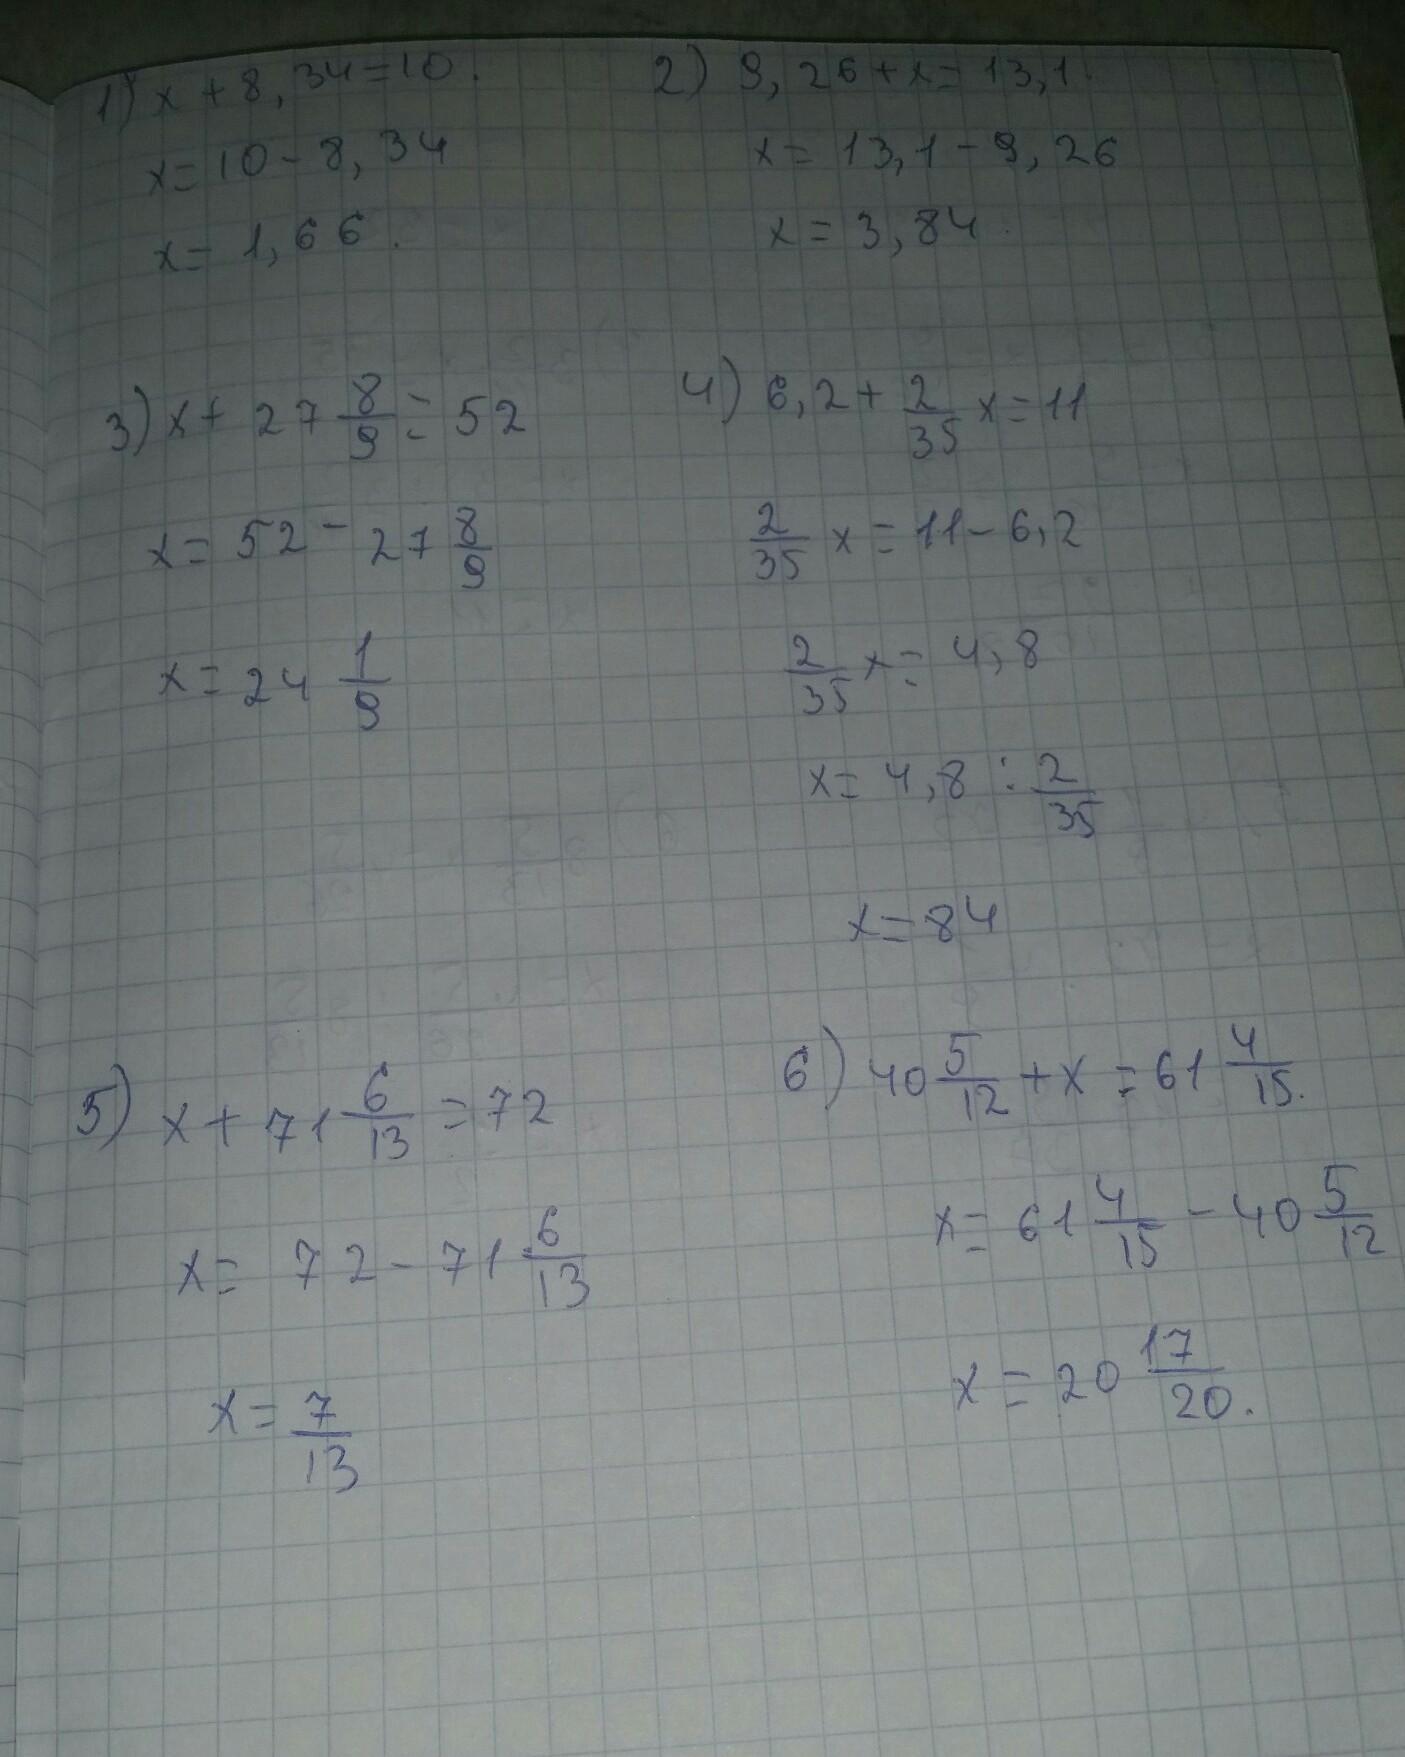 1) x + 8,34 = 10.
x = 10 - 8,34
x = 1,66.
2) 9,26 + x = 13,1.
x = 13,1 - 9,26
x = 3,84.
3) x + 27 8/9 = 52
x = 52 - 27 8/9
x = 24 1/9
4) 6,2 + 2/35 x = 11
2/35 x = 11 - 6,2
2/35 x = 4,8
x = 4,8 : 2/35
x = 84
5) x + 71 6/13 = 72
x = 72 - 71 6/13
x = 7/13
6) 40 5/12 + x = 61 4/15.
x = 61 4/15 - 40 5/12
x = 20 17/20.